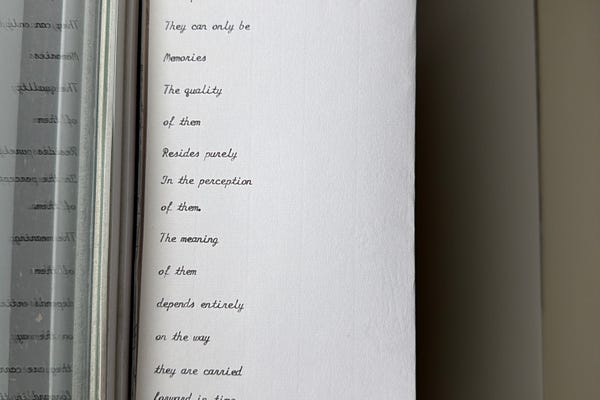 They can only be
Memories
The quality
of them
Resides purely
In the perception
of them.
The meaning
of them
depends entirely
on the way
they are carried
forward in time